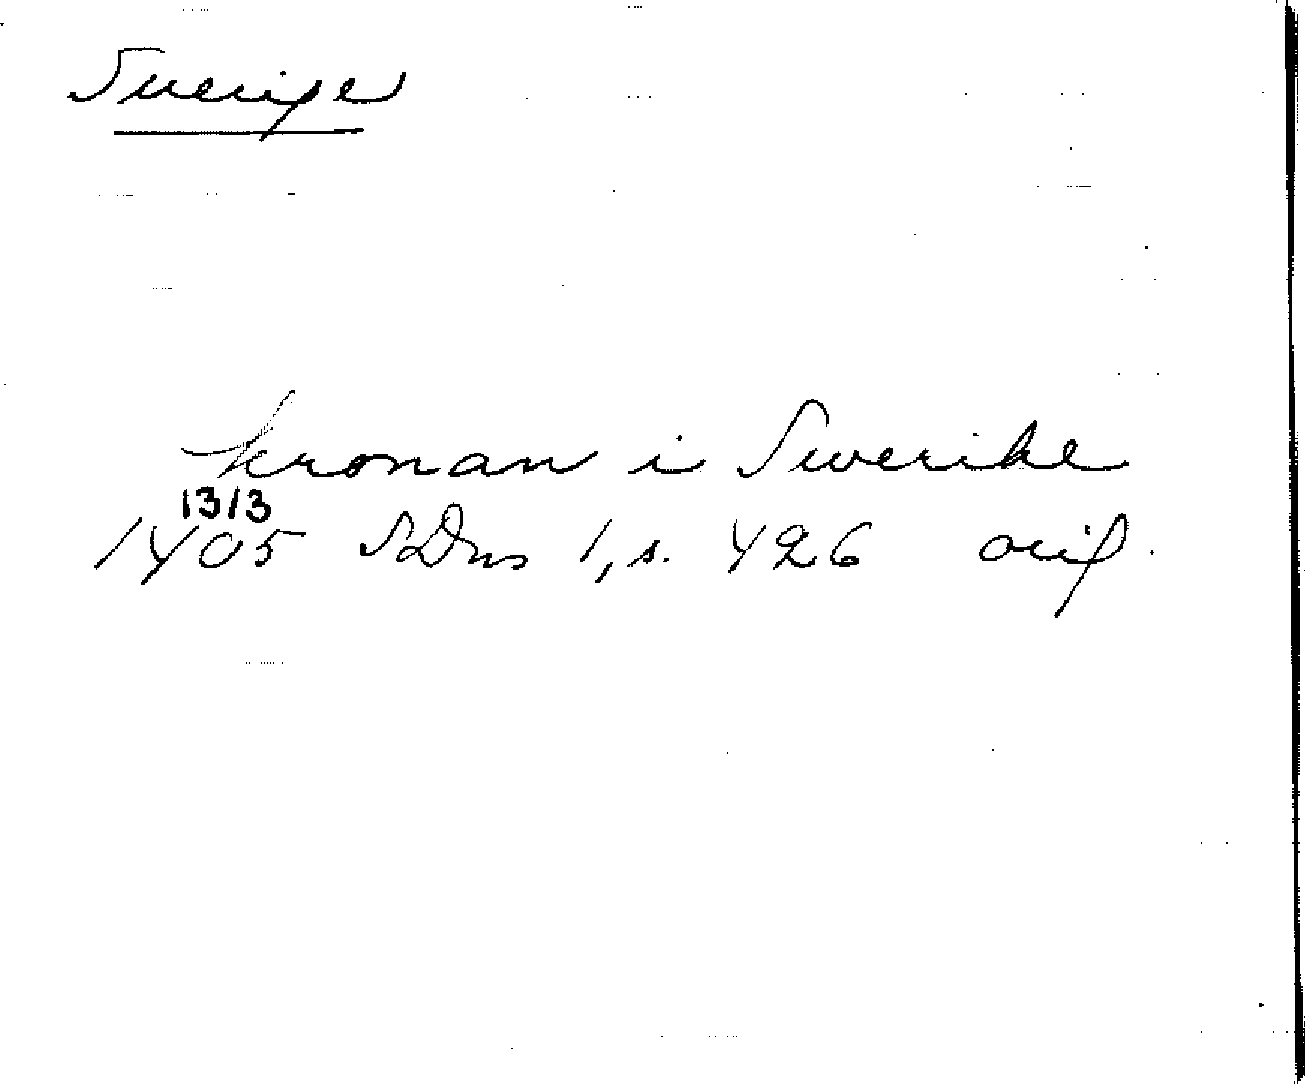 Sverige
kronan i Swerike
1313
1405 SDns 1, s. 426 orig.